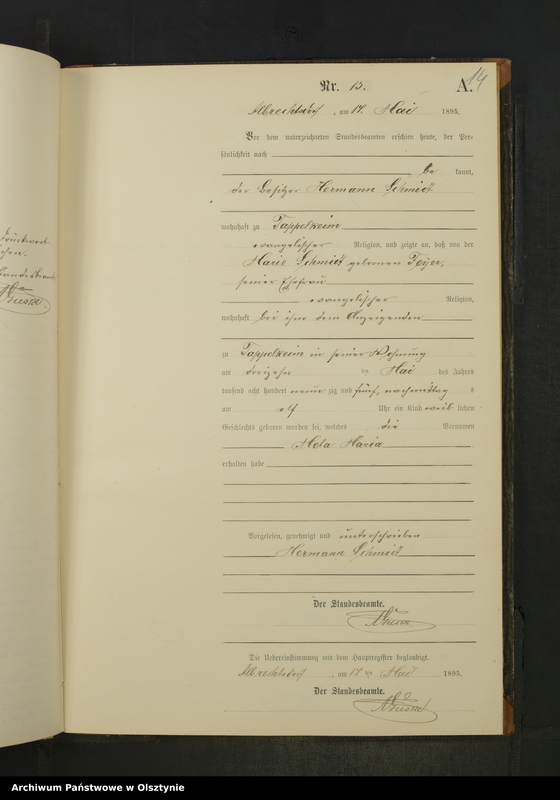 Nr. 13.
A.
14
Albrechtsdorf, am 14. Mai 1895.
Vor dem unterzeichneten Standesbeamten erschien heute, der Per-
sönlichkeit nach
be kannt,
der Besitzer Hermann Schmidt
wohnhaft zu Tappelkeim
evangelischer Religion, und zeigte an, daß von der
Marie Schmidt gebornen
seiner Ehefrau
evangelischer Religion,
wohnhaft bei ihm dem Anzeigenden
zu Tappelkeim in seiner Wohnung
am dreizehn ten Mai des Jahres
tausend acht hundert neun zig und fünf, nachmittag s
um elf Uhr ein Kind weib lichen
Geschlechts geboren worden sei, welches die Vornamen
Maria
erhalten habe
Vorgelesen, genehmigt und unterschrieben
Hermann Schmidt
Der Standesbeamte.
Die Uebereinstimmung mit dem Hauptregister beglaubigt.
Albrechtsdorf, am ten Mai 1895.
Der Standesbeamte.
Archiwum Państwowe w Olsztynie